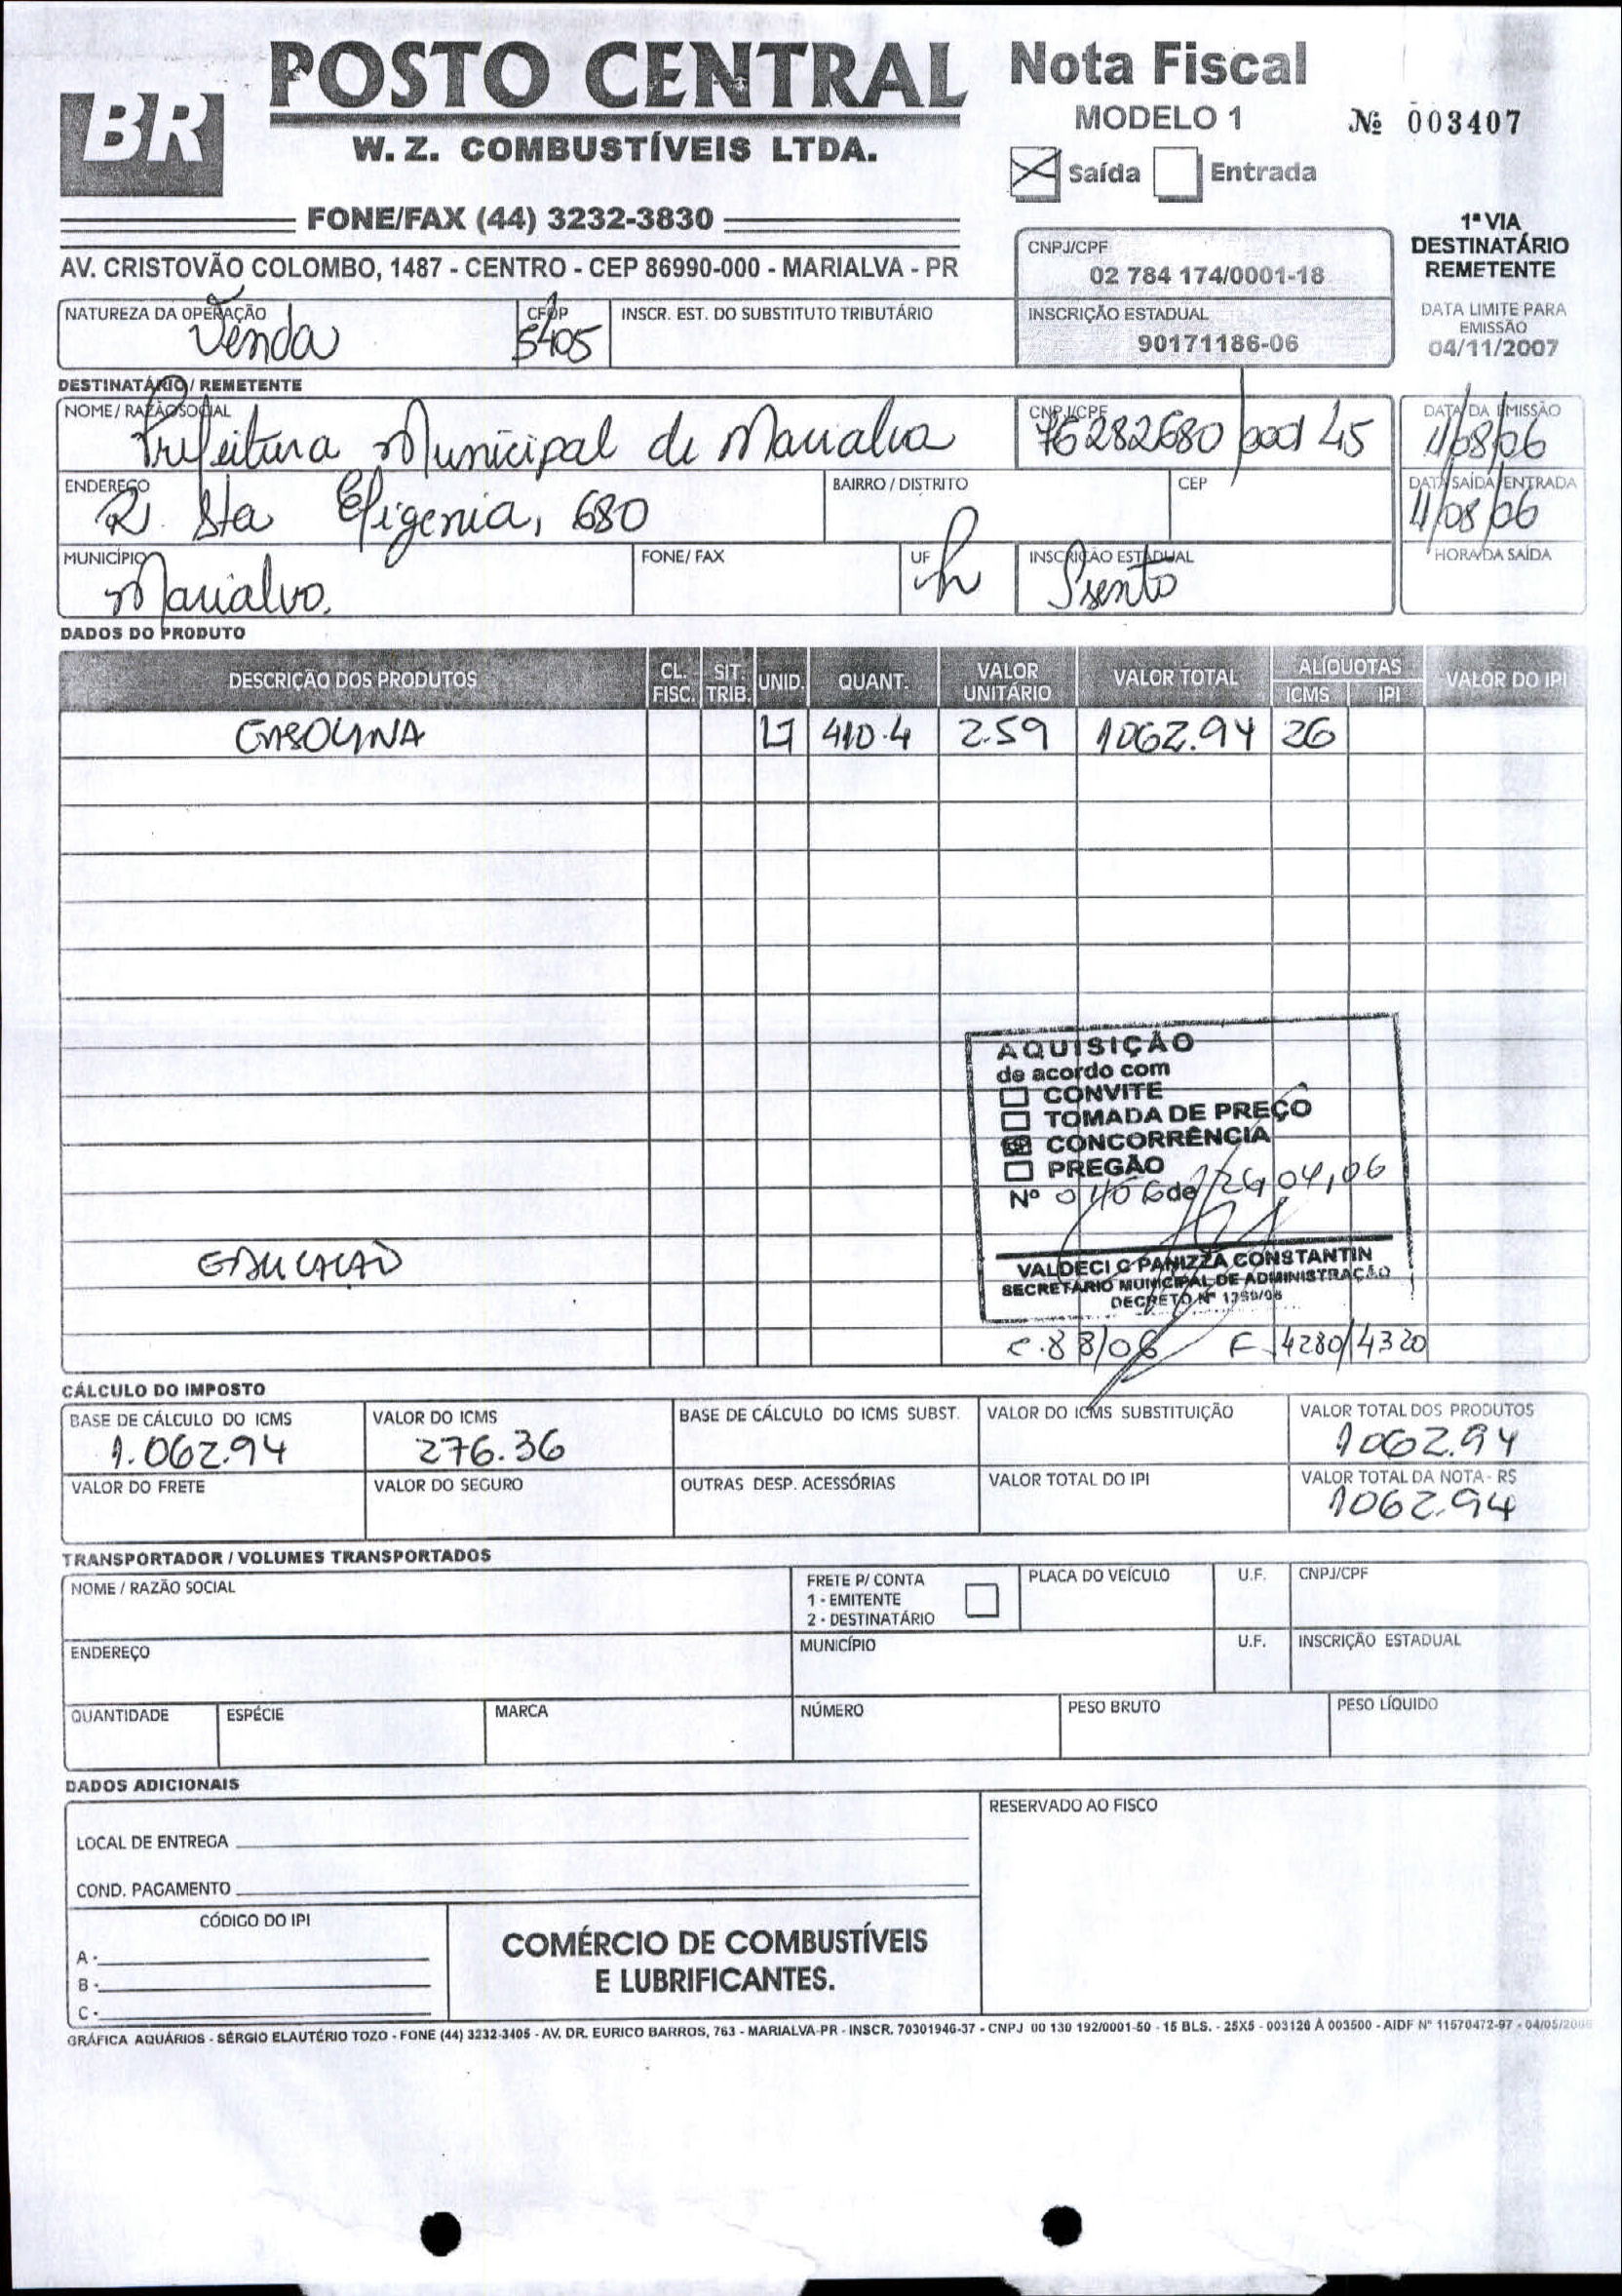 BR
POSTO CENTRAL
W. Z. COMBUSTÍVEIS LTDA.
FONE/FAX (44) 3232-3830
AV. CRISTOVÃO COLOMBO, 1487 - CENTRO - CEP 86990-000 - MARIALVA - PR
Nota Fiscal
MODELO 1 Nº 003407
Saída Entrada
1ª VIA
DESTINATÁRIO
REMETENTE
CNPJ/CPF
02 784 174/0001-18
DATA LIMITE PARA
EMISSÃO
04/11/2007
NATUREZA DA OPERAÇÃO CFOP INSCR. EST. DO SUBSTITUTO TRIBUTÁRIO INSCRIÇÃO ESTADUAL
Venda 5405 90171186-06
DESTINATÁRIO / REMETENTE
NOME / RAZÃO SOCIAL CNPJ/CPF DATA DA EMISSÃO
Prefeitura Municipal de Marialva 76282680/0001 45 11/08/06
ENDEREÇO BAIRRO / DISTRITO CEP DATA SAÍDA/ENTRADA
R. Sta Efigenia, 680 11/08/06
MUNICÍPIO FONE/ FAX UF INSCRIÇÃO ESTADUAL HORA DA SAÍDA
Marialva Isento
DADOS DO PRODUTO
DESCRIÇÃO DOS PRODUTOS CL. FISC. SIT. TRIB. UNID. QUANT. VALOR UNITÁRIO VALOR TOTAL ALÍQUOTAS ICMS IPI VALOR DO IPI
GASOLINA LT 410.4 2.59 1062.94 26
AQUISIÇÃO
de acordo com
CONVITE
TOMADA DE PREÇO
CONCORRÊNCIA
PREGÃO
Nº de 04,06
EDUCAÇÃO
VALDECI C PANIZZA CONSTANTIN
SECRETÁRIO MUNICIPAL DE ADMINISTRAÇÃO
DECRETO Nº
c.88/06 F 4280/4320
CÁLCULO DO IMPOSTO
BASE DE CÁLCULO DO ICMS VALOR DO ICMS BASE DE CÁLCULO DO ICMS SUBST. VALOR DO ICMS SUBSTITUIÇÃO VALOR TOTAL DOS PRODUTOS
1.062.94 276.36 1062.94
VALOR DO FRETE VALOR DO SEGURO OUTRAS DESP. ACESSÓRIAS VALOR TOTAL DO IPI VALOR TOTAL DA NOTA - R$
1062.94
TRANSPORTADOR / VOLUMES TRANSPORTADOS
NOME / RAZÃO SOCIAL FRETE P/ CONTA PLACA DO VEÍCULO U.F. CNPJ/CPF
1 - EMITENTE
2 - DESTINATÁRIO
ENDEREÇO MUNICÍPIO U.F. INSCRIÇÃO ESTADUAL
QUANTIDADE ESPÉCIE MARCA NÚMERO PESO BRUTO PESO LÍQUIDO
DADOS ADICIONAIS
RESERVADO AO FISCO
LOCAL DE ENTREGA
COND. PAGAMENTO
CÓDIGO DO IPI
A -
B -
C -
COMÉRCIO DE COMBUSTÍVEIS
E LUBRIFICANTES.
GRÁFICA AQUÁRIOS - SÉRGIO ELAUTÉRIO TOZO - FONE (44) 3232-3405 - AV. DR. EURICO BARROS, 763 - MARIALVA-PR - INSCR. 70301946-37 - CNPJ 00 130 192/0001-50 - 15 BLS. - 25X5 - 003126 À 003500 - AIDF Nº 11570472-97 - 04/05/2006